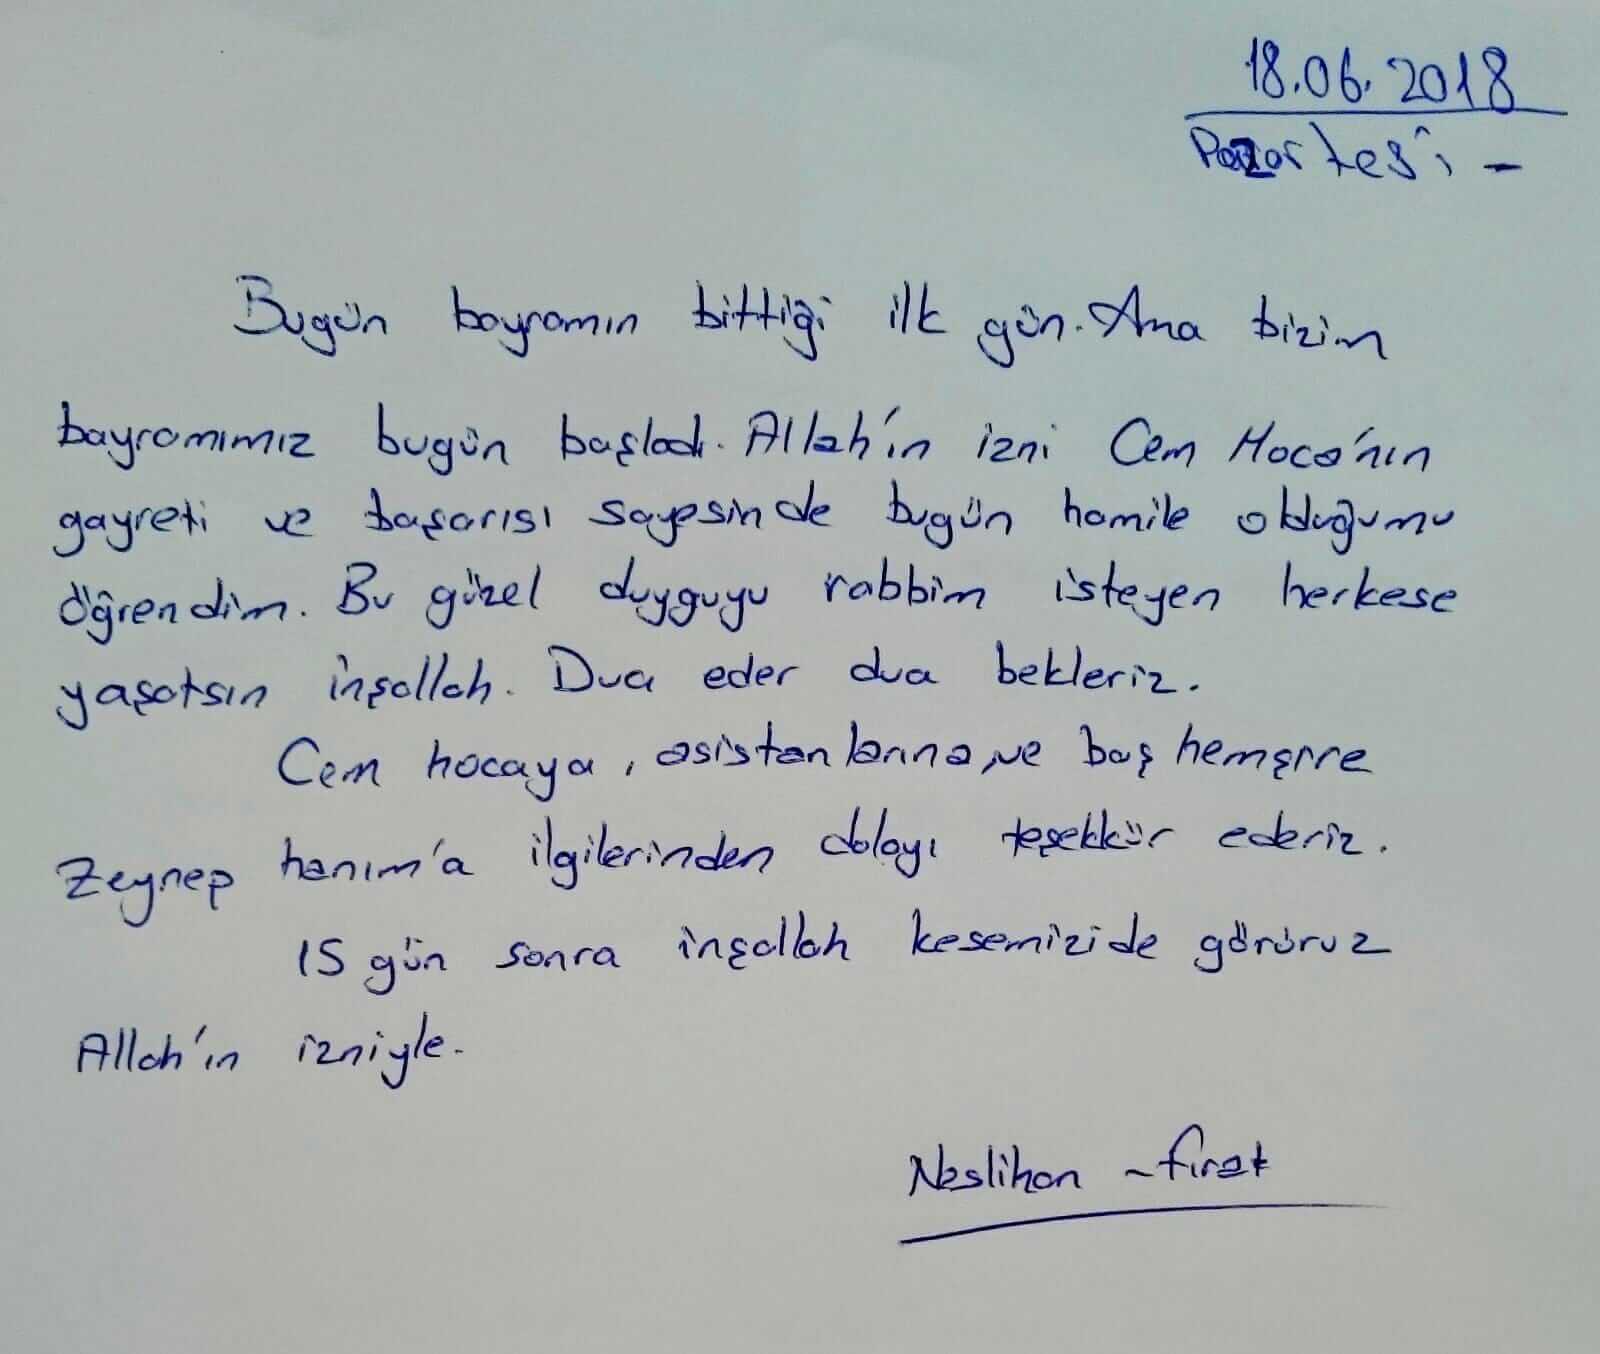 18.06.2018
Pazartesi -
Bugün bayramın bittiği ilk gün. Ama bizim
bayramımız bugün başladı. Allah'ın izni Cem Hoca'nın
gayreti ve başarısı sayesinde bugün hamile olduğumu
öğrendim. Bu güzel duyguyu rabbim isteyen herkese
yaşatsın inşallah. Dua eder dua bekleriz.
Cem hocaya, asistanlarına, ve baş hemşrre
Zeynep hanım'a ilgilerinden dolayı teşekkür ederiz.
15 gün sonra inşallah kesemizide görürüz
Allah'ın izniyle.
Neslihan - fırat